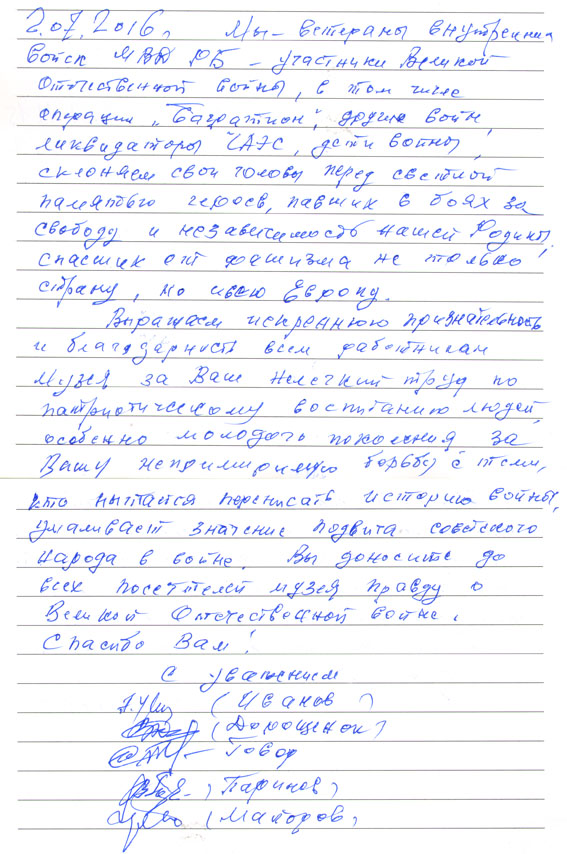 2.07.2016, Мы - ветераны внутренних
войск МВД РБ - участники Великой
Отечественной войны, в том числе
операции "Багратион", других войн,
ликвидаторы ЧАЭС, дети войны,
склоняем свои головы перед светлой
памятью героев, павших в боях за
свободу и независимость нашей Родины,
спасших от фашизма не только
страну, но и всю Европу.
Выражаем искреннюю признательность
и благодарность всем работникам
музея за Ваш нелегкий труд по
патриотическому воспитанию людей,
особенно молодого поколения за
Вашу непримиримую борьбу с теми,
кто пытается переписать историю войны,
умаливает значение подвига советского
народа в войне. Вы доносите до
всех посетителей музея правду о
Великой Отечественной войне.
Спасибо Вам!
С уважением
(Иванов)
(Дорощенок)
Говор
(Паринов)
(Майоров)